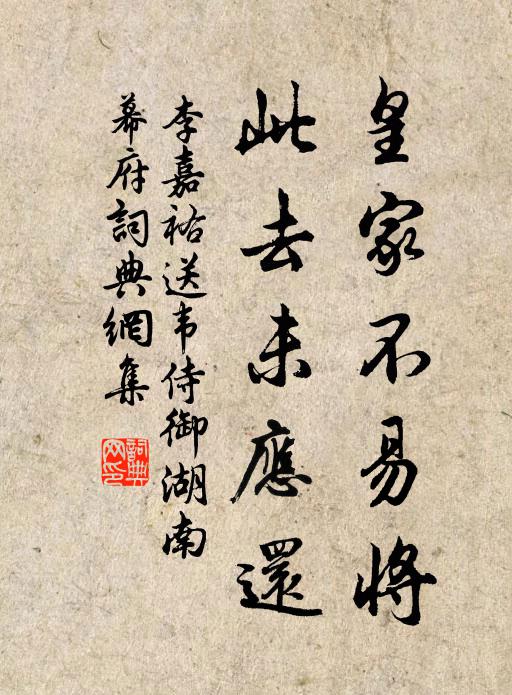 皇家不易將
此去未應還
李嘉祐送韦侍御湖南
幕府詞典網集
詞典网印